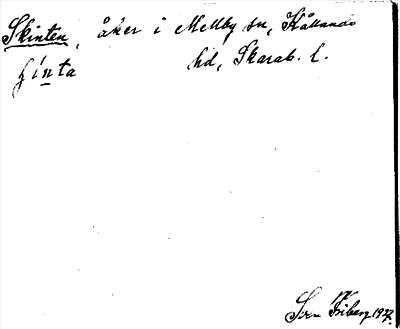 Skinten, åker i Mellby sn, Kållands
hd, Skarab. l.
ʃínta
Sven Friberg 197?